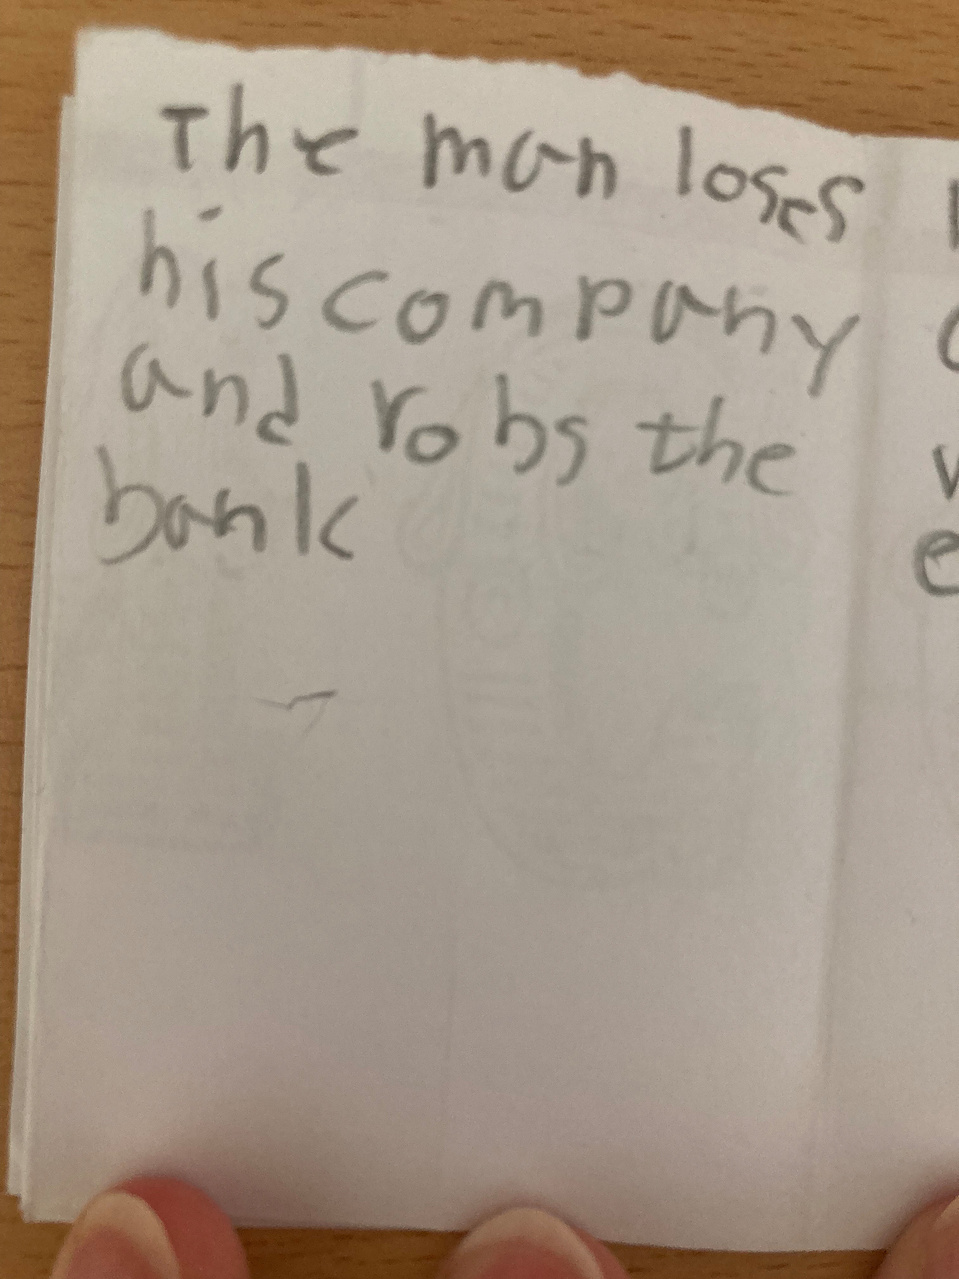 The man loses
his company
and robs the
bank